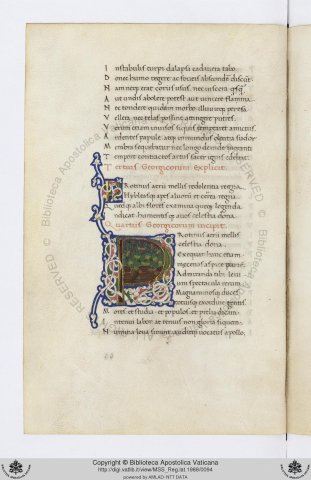 I nstabulis turpi dilapsa cadauera tabo
D onec humo tegere ac foueis abscondere discunt
N am neque erat coriis usus. nec uiscera quisquam
A ut undis abolere potest aut uincere flamma
N ec tondere quidem morbo illuuieque peresa
V ellera. nec telas possunt attingere putres
V erum etiam inuisos siquis temptarat amictus
A rdentes papule. atque immundus olentia sudor
M embra sequebatur nec longo deinde moranti
T empore contactos artus sacer ignis edebat
Tertius Georgicorum explicit.
rotinus aerii mellis redolentia regna
Hybleas apes aluorum et cerea regna
Quartus Georgicorum incipit.
Protinus aerii mellis
celestia dona
Exequar hanc etiam
mecenas aspice partem
Admiranda tibi leui
um spectacula rerum
Magnanimosque duces
totiusque ex ordine gentis
M ores et studia et populos et prelia dicam
I ntenui labor at tenuis non gloria siquem
N umina leua sinunt auditque uocatus apollo.
RESERVED © Biblioteca Apostolica Vaticana
Copyright © Biblioteca Apostolica Vaticana
http://digi.vatlib.it/view/MSS_Reg.lat.1988/0094
powered by AMLAD-NTT DATA